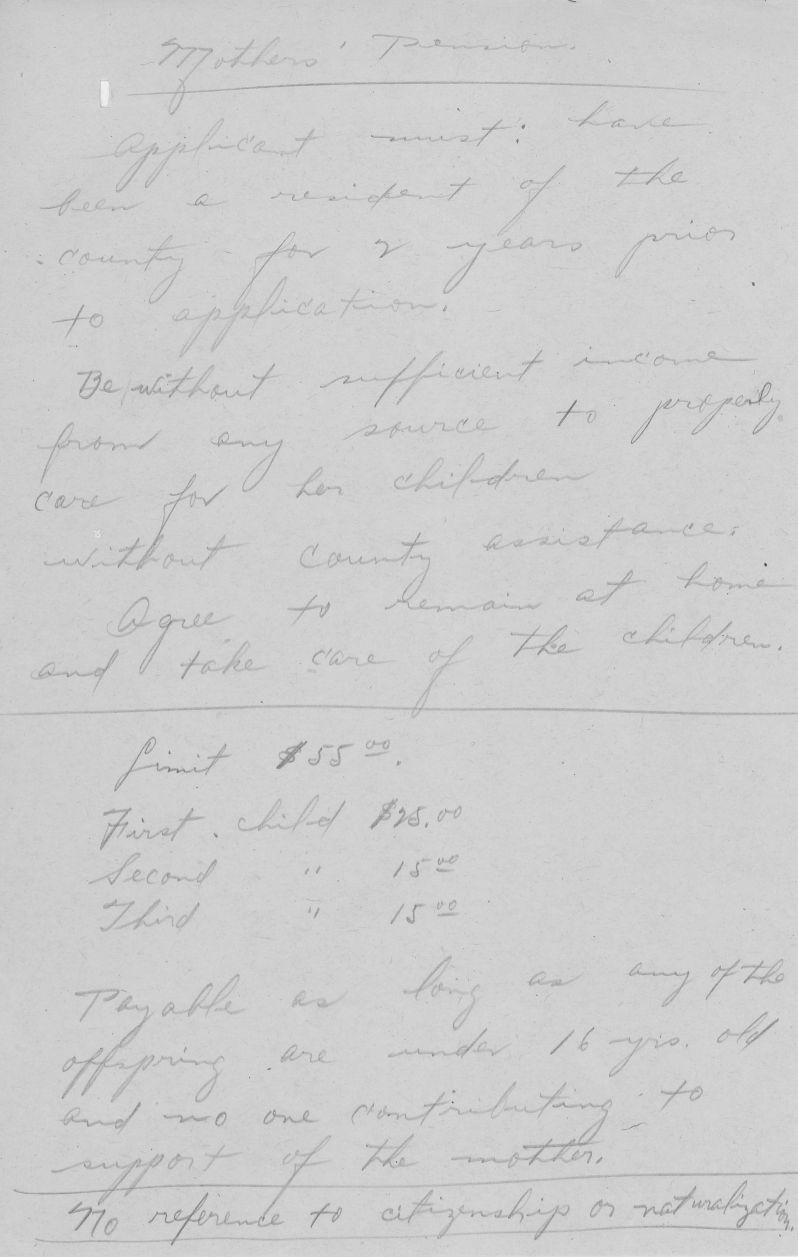 Mothers' Pension.
Applicant must: have
been a resident of the
county for 2 years prior
to application.
Be without sufficient income
from any source to properly
care for her children
without county assistance.
Agree to remain at home
and take care of the children.
Limit $55 00.
First child $25.00
Second " 15 00
Third " 15 00
Payable as long as any of the
offspring are under 16 yrs. old
and no one contributing to
support of the mother.
No reference to citizenship or naturalization.